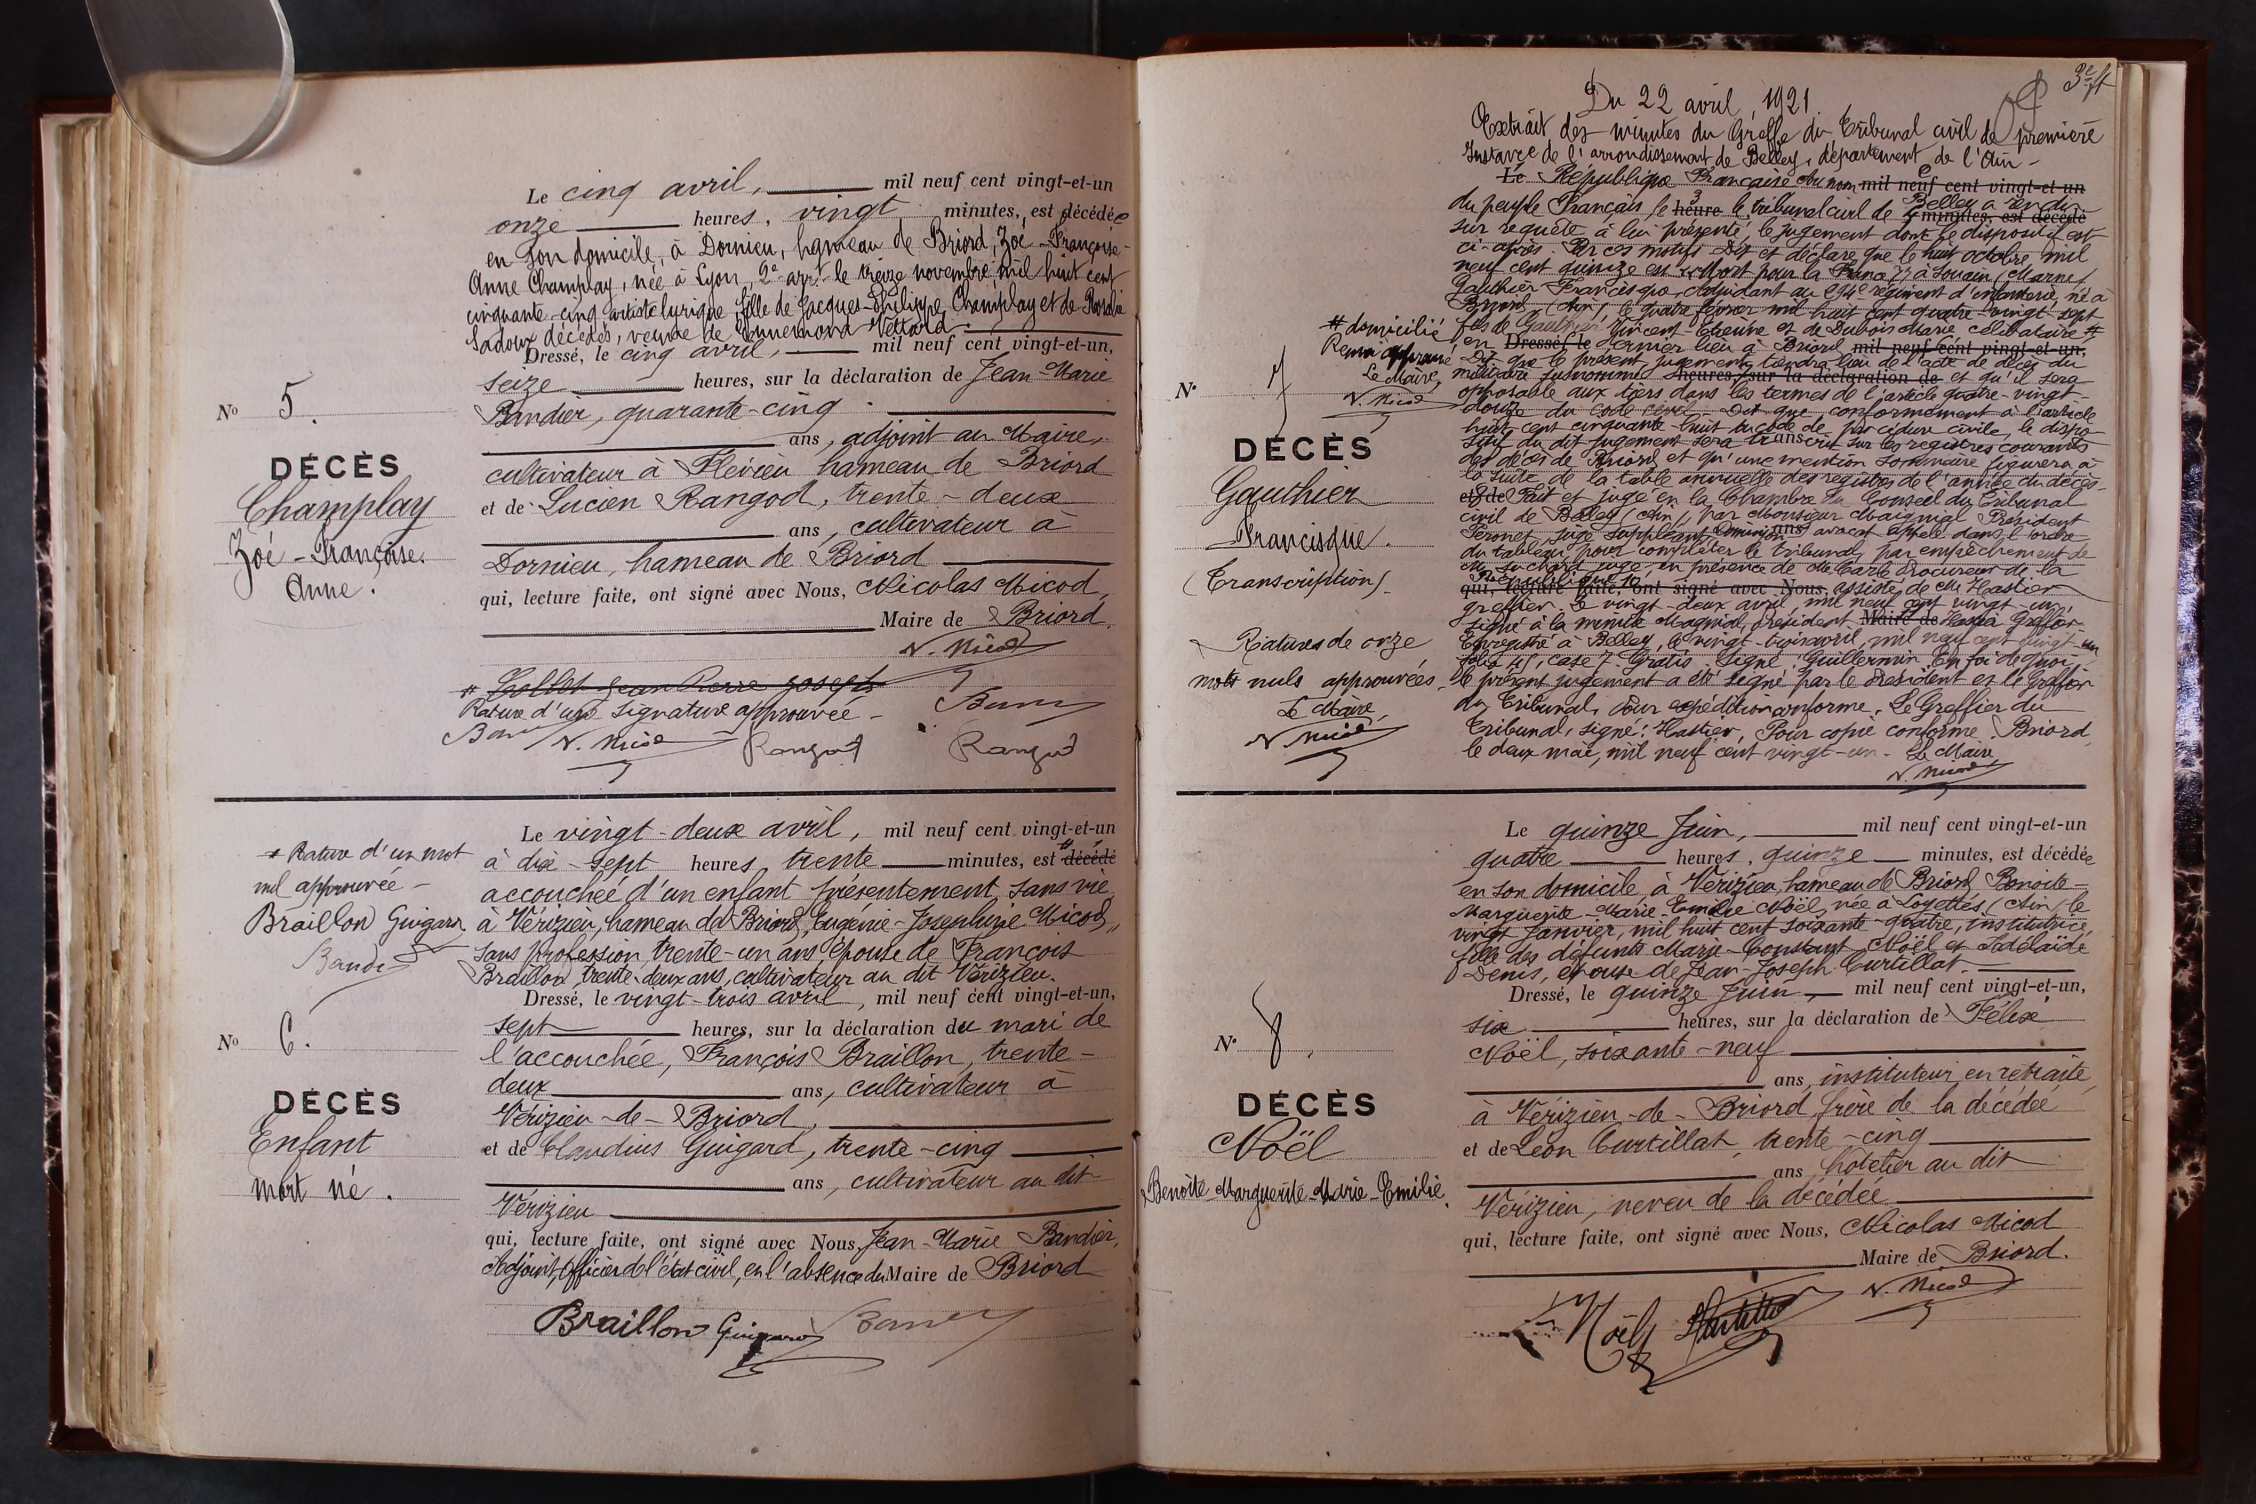 Le cinq avril, mil neuf cent vingt-et-un
onze heures, vingt minutes, est décédée
en son domicile, à Dornieu, hameau de Briord, Zoé-Françoise-
Anne Champlay, née à Lyon, 2e arrt le treize novembre, mil huit cent
cinquante-cinq, artiste lyrique, fille de Jacques-Philippe Champlay et de Rosalie
Sadoux décédés, veuve de Vettard.
Dressé, le cinq avril, mil neuf cent vingt-et-un,
seize heures, sur la déclaration de Jean-Marie
Bandier, quarante-cinq
ans, adjoint au Maire,
cultivateur à Flévieu hameau de Briord
et de Lucien Rangod, trente-deux
ans, cultivateur à
Dornieu, hameau de Briord
qui, lecture faite, ont signé avec Nous, Nicolas Micod,
Maire de Briord.
N. Micod
No 5.
DÉCÈS
Champlay
Zoé-Françoise.
Anne.
# Jean Pierre Joseph
Rature d'une signature approuvée-
N. Micod Rangod Rangod
Le vingt-deux avril, mil neuf cent vingt-et-un
à dix-sept heures, trente minutes, est # décédé
accouchée d'un enfant présentement sans vie
à Vérizieu, hameau de Briord, Eugénie-Joséphine Micod,
sans profession, trente-un ans épouse de François
Braillon, trente-deux ans, cultivateur au dit Vérizieu.
Dressé, le vingt-trois avril, mil neuf cent vingt-et-un,
sept heures, sur la déclaration du mari de
l'accouchée, François Braillon, trente-
deux ans, cultivateur à
Vérizieu-de-Briord,
et de Claudius Guigard, trente-cinq
ans, cultivateur au dit
Vérizieu
qui, lecture faite, ont signé avec Nous, Jean-Marie Bandier,
Adjoint, Officier de l'état civil, en l'absence du Maire de Briord
Braillon Guigard
# Rature d'un mot
nul approuvée-
Braillon Guigard
No 6.
DÉCÈS
Enfant
mort né.
3e
Du 22 avril, 1921.
Extrait des minutes du Greffe du Tribunal civil de première
Instance de l'arrondissement de Belley, département de l'Ain-
Le République Française Au nom mil neuf cent vingt-et un
du peuple Français, le heure le tribunal civil de Belley a rendu minutes, est décédé
sur requête à lui présenté, le jugement dont le dispositif est
ci-après. Par ces motifs Dit et déclare que le huit octobre mil
neuf cent quinze est "Mort pour la France" à Souain (Marne)
Gauthier Francisque, Adjudant au régiment d'infanterie, né à
Briord (Ain), le quatre février mil huit cent quatre-vingt-sept
fils de Gauthier Vincent Etienne et de Dubois Marie célibataire #
en Dressé, le dernier lieu à Briord mil neuf cent vingt-et-un,
Dit que le présent jugement tiendra lieu de l'acte de décès du
militaire susnommé heures, sur la déclaration de et qu'il sera
opposable aux tiers dans les termes de l'article quatre-vingt-
douze du Code civil. Dit que, conformément à l'article
huit cent cinquante-huit du code de procédure civile, le dispo-
sitif du dit jugement sera transcrit sur les registres courants
des décès de Briord et qu'une mention sommaire figurera à
la suite de la table annuelle des registres de l'année du décès-
et de Fait et jugé en la Chambre du Conseil du Tribunal
civil de Belley (Ain), par Monsieur Maignial Président
Peronet, juge suppléant, ans avocat appelé dans l'ordre
du tableau, pour compléter le Tribunal, par empêchement de
juge, en présence de Mr Procureur de la
République
qui, lecture faite, ont signé avec Nous, assisté de Me Hastier
greffier. Le vingt-deux avril, mil neuf cent vingt-un,
signé à la minute Maignial, président Maire de Hastier Greffier.
Enregistré à Belley, le vingt-trois avril, mil neuf cent vingt-un
folio 41, case 7. Gratis. Signé, Guillermin. En foi de quoi
le présent jugement a été signé par le président et le Greffier
du Tribunal. Pour expédition conforme. Le Greffier du
Tribunal, signé: Hastier. Pour copie conforme. Briord,
le deux mai, mil neuf cent vingt-un. Le Maire
N. Micod
# domicilié
Renvoi approuvé
Le Maire,
N. Micod
No 7
DÉCÈS
Gauthier
Francisque.
(Transcription)
Ratures de onze
mots nuls approuvées
Le Maire,
N. Micod
Le quinze Juin, mil neuf cent vingt-et-un
quatre heures, quinze minutes, est décédée
en son domicile à Vérizieu, hameau de Briord Benoite-
Marguerite-Marie-Emilie Noël, née à Loyettes (Ain) le
vingt Janvier, mil huit cent soixante-quatre, institutrice,
fille des défunts Marie-Constant Noël et Adélaïde
Denis, épouse de Jean-Joseph Curtillat.
Dressé, le quinze Juin, mil neuf cent vingt-et-un,
six heures, sur la déclaration de Félix
Noël, soixante-neuf
ans, instituteur en retraite,
à Vérizieu-de-Briord, frère de la décédée
et de Léon Curtillat, trente-cinq
ans, hôtelier au dit
Vérizieu, neveu de la décédée
qui, lecture faite, ont signé avec Nous, Nicolas Micod
Maire de Briord.
N. Micod
Noël
No 8.
DÉCÈS
Noël
Benoîte-Marguerite-Marie-Emilie.